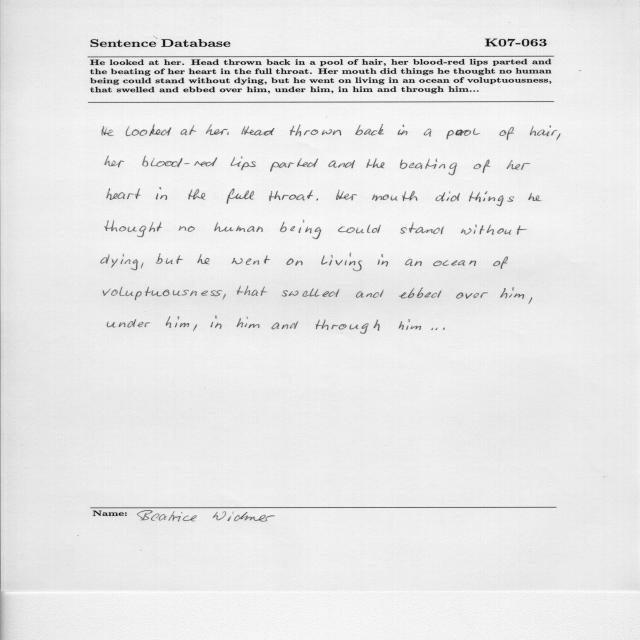 Sentence Database K07-063
He looked at her. Head thrown back in a pool of hair, her blood-red lips parted and
the beating of her heart in the full throat. Her mouth did things he thought no human
being could stand without dying, but he went on living in an ocean of voluptuousness,
that swelled and ebbed over him, under him, in him and through him...
He looked at her. Head thrown back in a pool of hair,
her blood-red lips parted and the beating of her
heart in the full throat. Her mouth did things he
thought no human being could stand without
dying, but he went on living in an ocean of
voluptuousness, that swelled and ebbed over him,
under him, in him and through him ...
Name: Beatrice Widmer